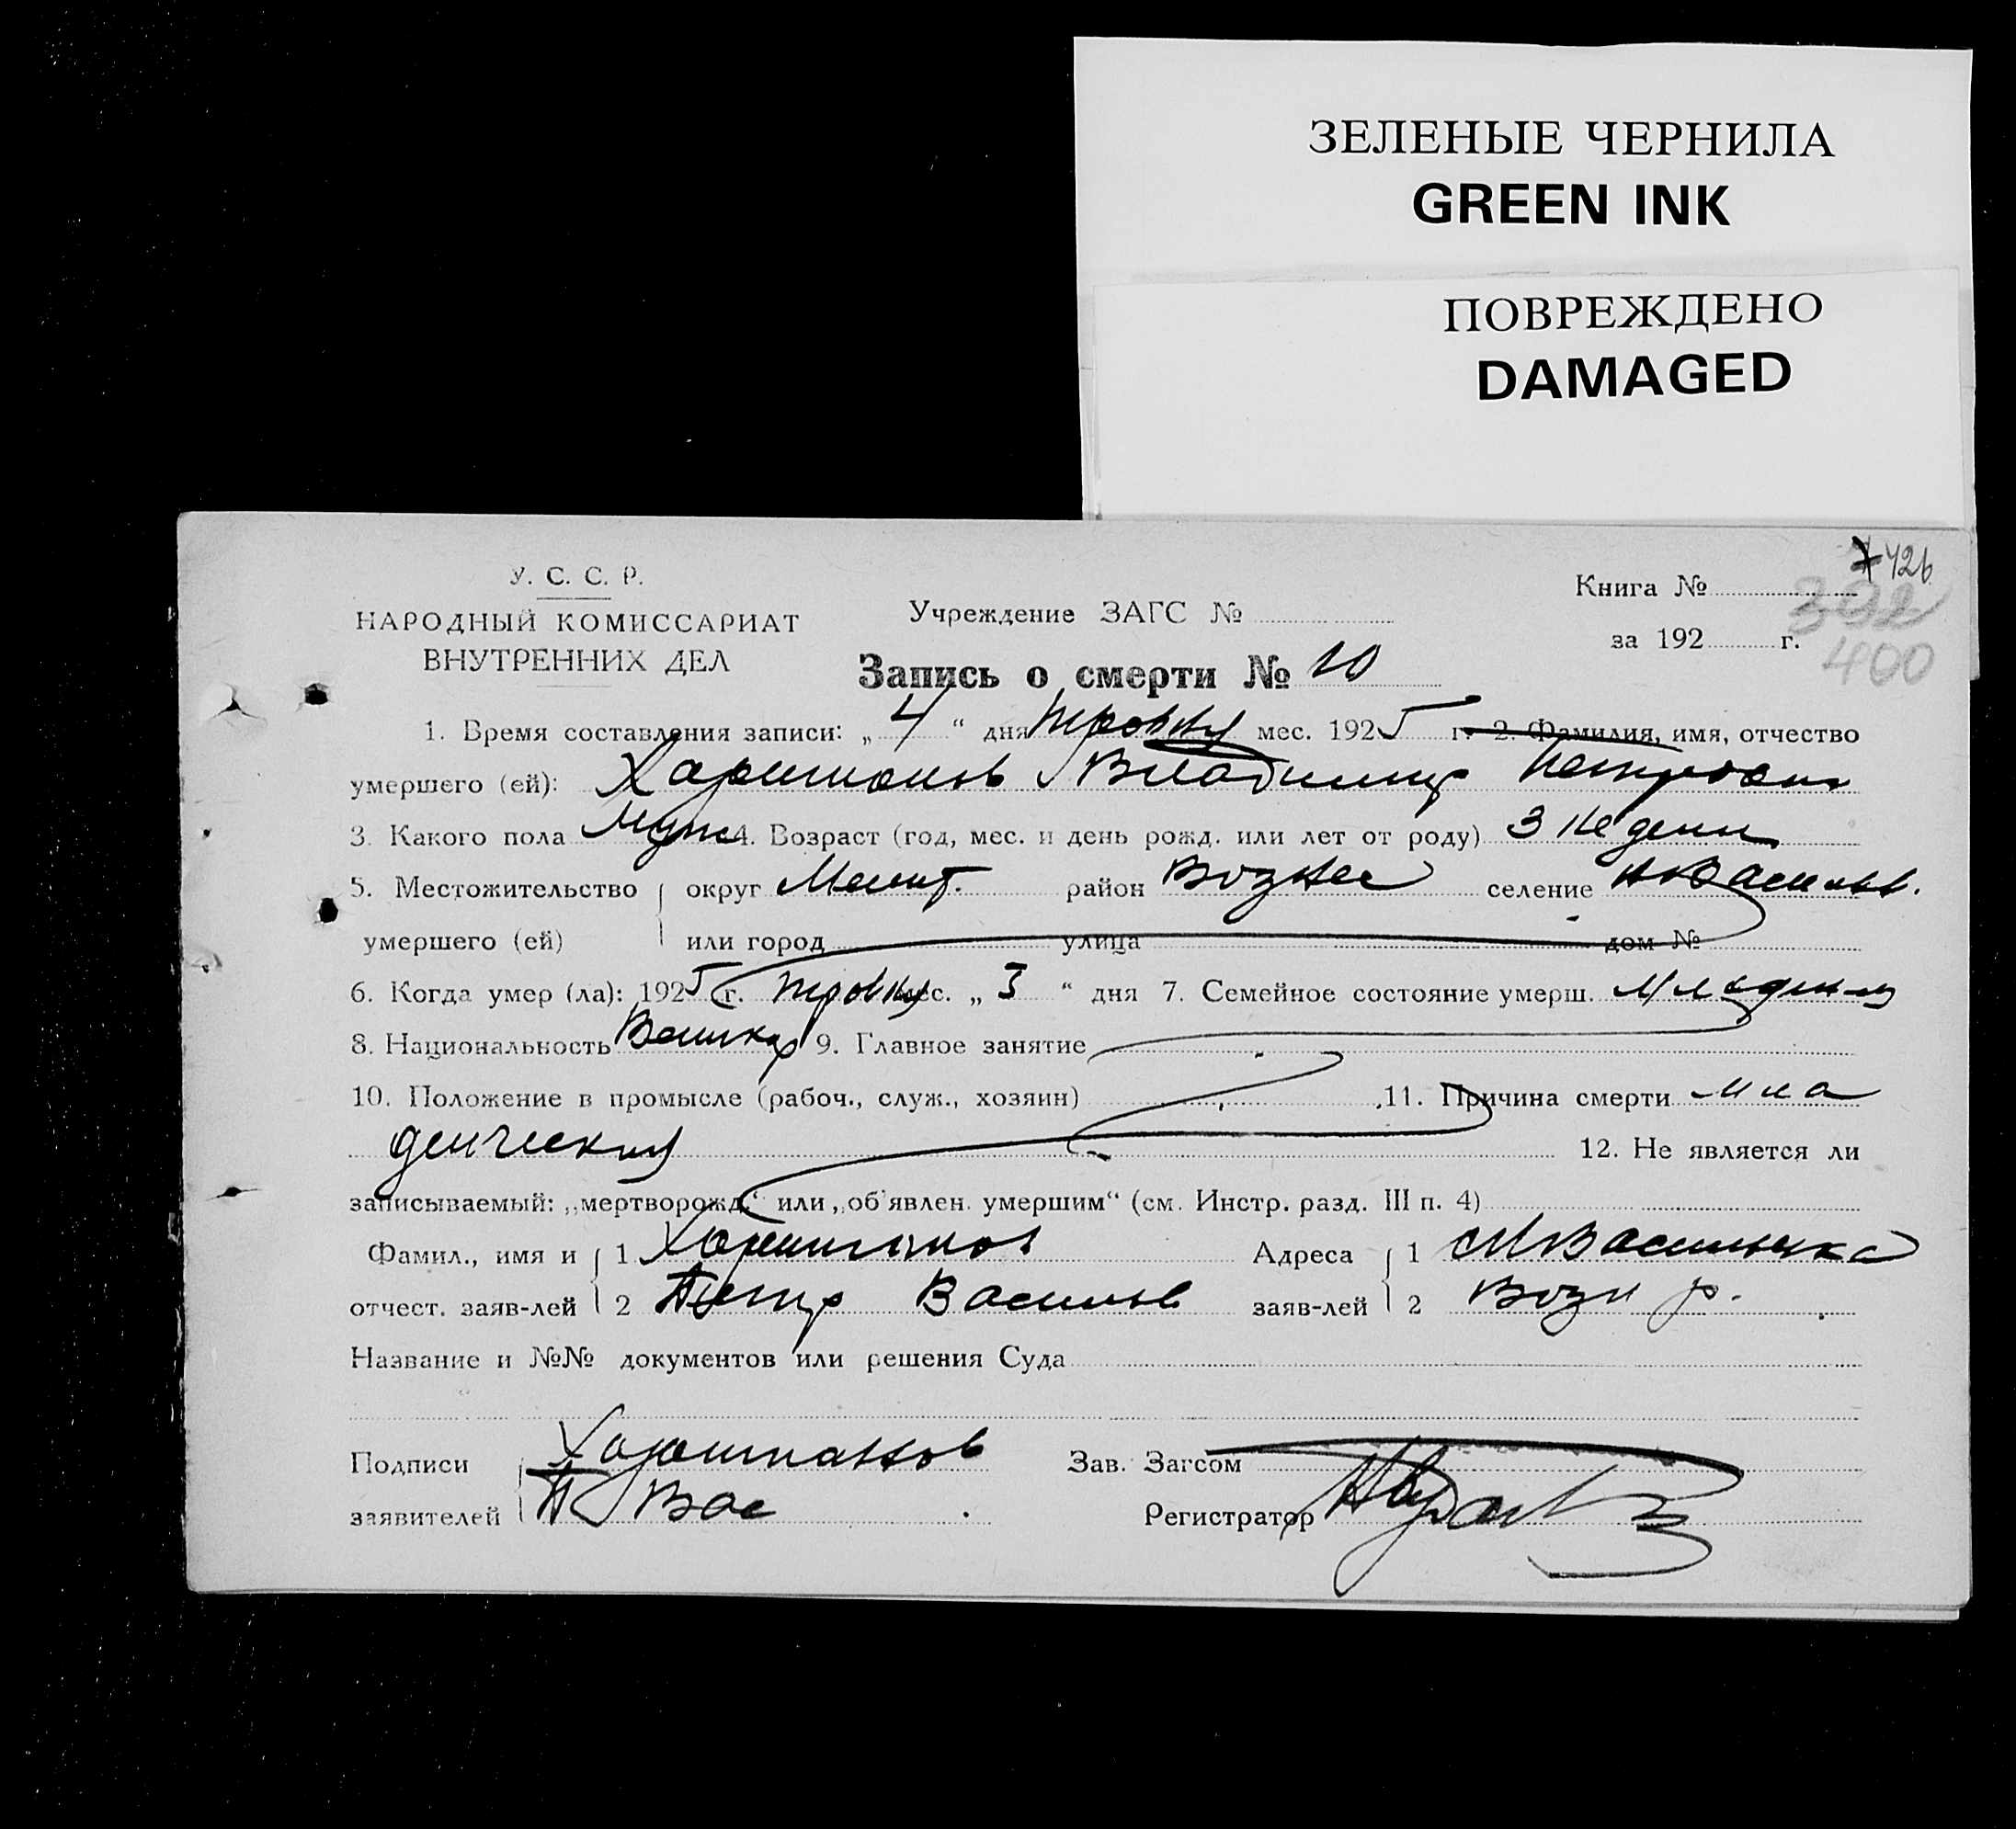 ЗЕЛЕНЫЕ ЧЕРНИЛА
GREEN INK
ПОВРЕЖДЕНО
DAMAGED
У. С. С. Р.
НАРОДНЫЙ КОМИССАРИАТ
ВНУТРЕННИХ ДЕЛ
Учреждение ЗАГС №
Книга № 426
392
за 192 г.
400
Запись о смерти № 10
1. Время составления записи: „ 4 “ дня травня мес. 1925 г. 2. Фамилия, имя, отчество
умершего (ей): Харитонов Владимир Петрович
3. Какого пола Муж 4. Возраст (год, мес. и день рожд. или лет от роду) 3 недели
5. Местожительство округ Мелит. район Вознес селение Н Васильев.
умершего (ей) или город улица дом №
6. Когда умер (ла): 1925 г. травня мес. „ 3 “ дня 7. Семейное состояние умерш. Младенец
8. Национальность 9. Главное занятие
10. Положение в промысле (рабоч., служ., хозяин) 11. Причина смерти мла
денческая 12. Не является ли
записываемый: „мертворожд.“ или „об'явлен. умершим“ (см. Инстр. разд. III п. 4)
Фамил., имя и 1 Харитонов Адреса 1 Васильевка
отчест. заяв-лей 2 Петр Васильев заяв-лей 2 Возн р.
Название и №№ документов или решения Суда
Подписи Харитонов Зав. Загсом
заявителей П Вас Регистратор